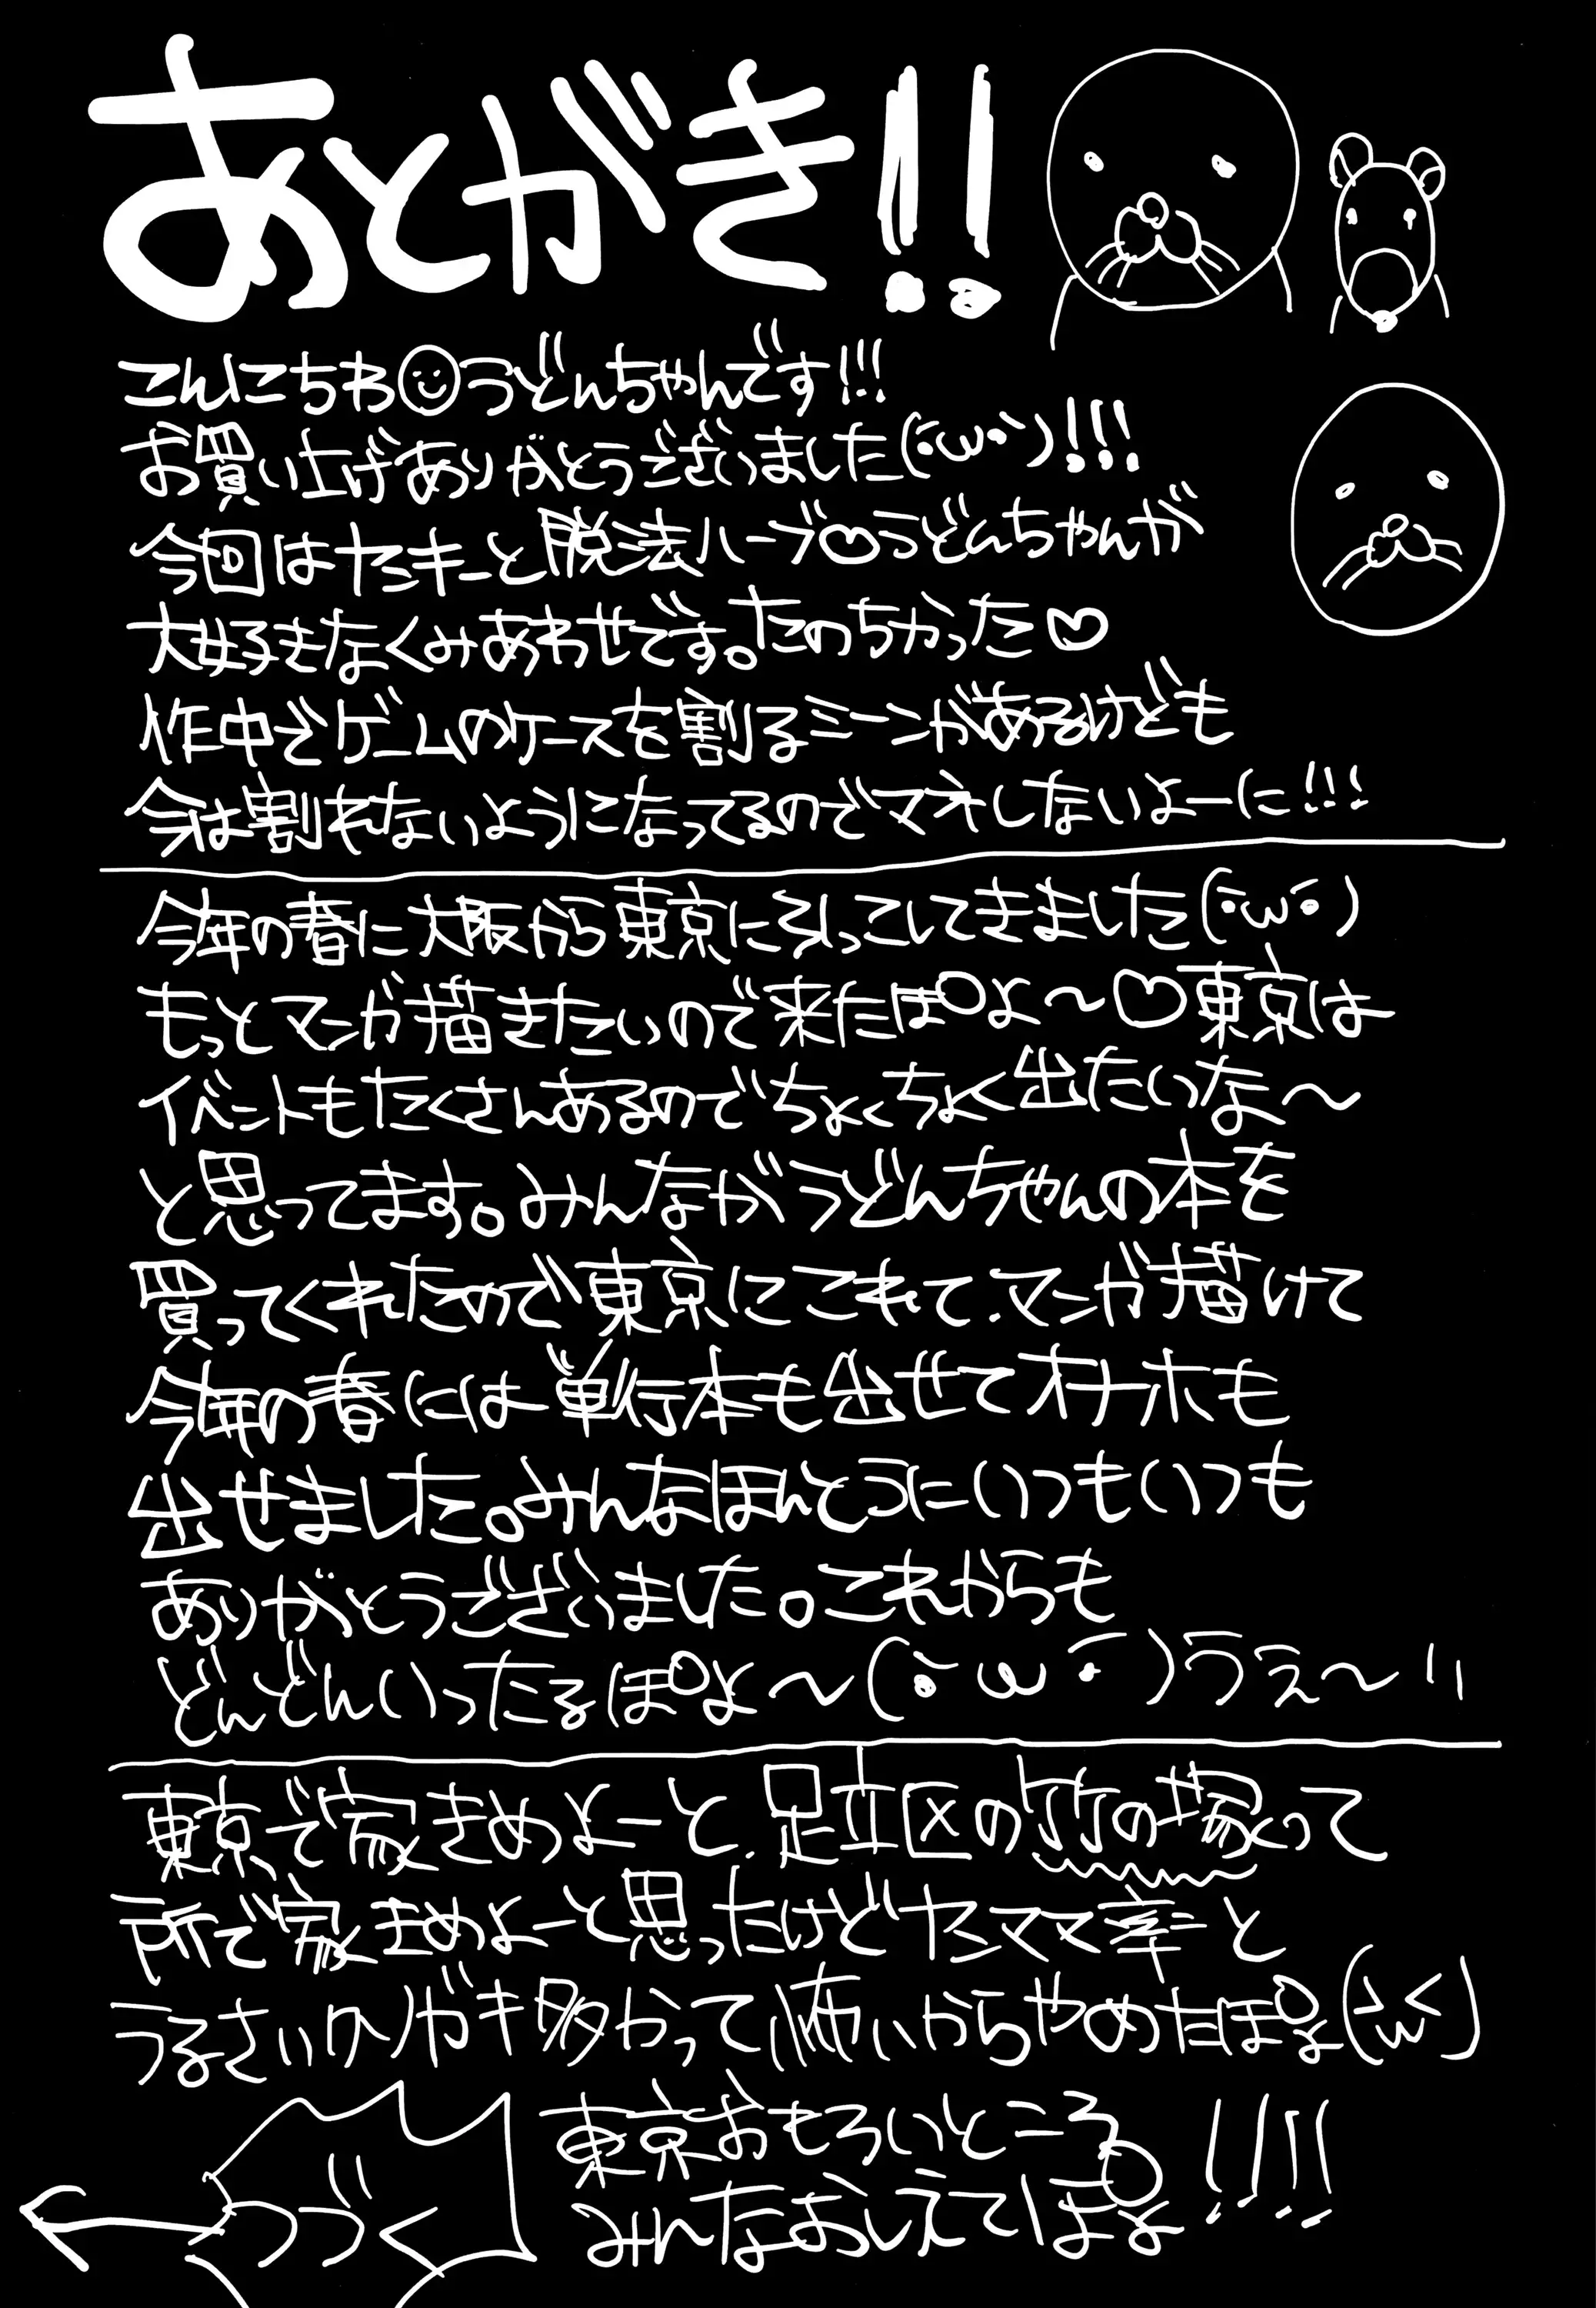 あとがき!!
こんにちわ☺うどんちゃんです!!!
お買い上げありがとうございました(・ω・)!!!
今回はヤンキーと脱法ハーブ♡うどんちゃんが
大好きなくみあわせです。たのちかった♡
作中でゲームのケースを割るシーンがあるけども
今は割れないようになってるのでマネしないよーに!!!
今年の春に大阪から東京に引っこしてきました(・ω・)
もっとマンガ描きたいので来たぽよ～♡東京は
イベントもたくさんあるのでちょくちょく出たいな～
と思ってます。みんながうどんちゃんの本を
買ってくれたので東京にこれて、マンガ描けて
今年の春には単行本も出せてオナホも
出せました。みんなほんとうにいつもいつも
ありがとうございました。これからも
どんどんいったるぽよ～(・ω・)うぇ～い
東京で家きめよーと、足立区の竹の塚って
所で家きめよーと思ったけどヤンママ率と
うるさいクソガキ多かって怖いからやめたぽよ(>ω<)
東京おもろいところ
みんなおしえてぽよ!!!!
つづく